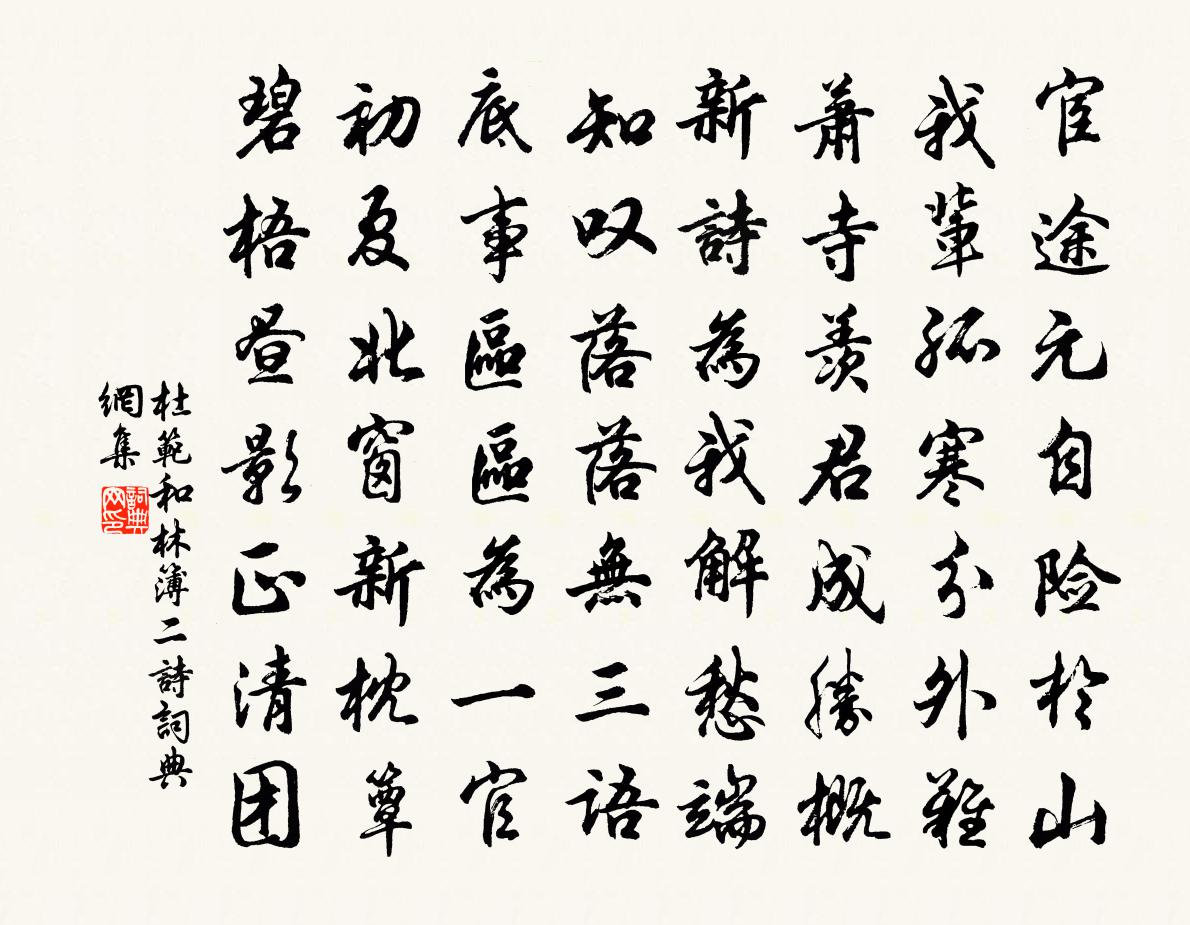 宦途元自险於山
我輩孤寒分外難
蕭寺羨君成勝概
新詩為我解愁端
知叹落落無三語
底事區區為一官
初夏北窗新枕簟
碧梧昼影正清团
杜範和林簿二詩詞典
網集
詞典网印